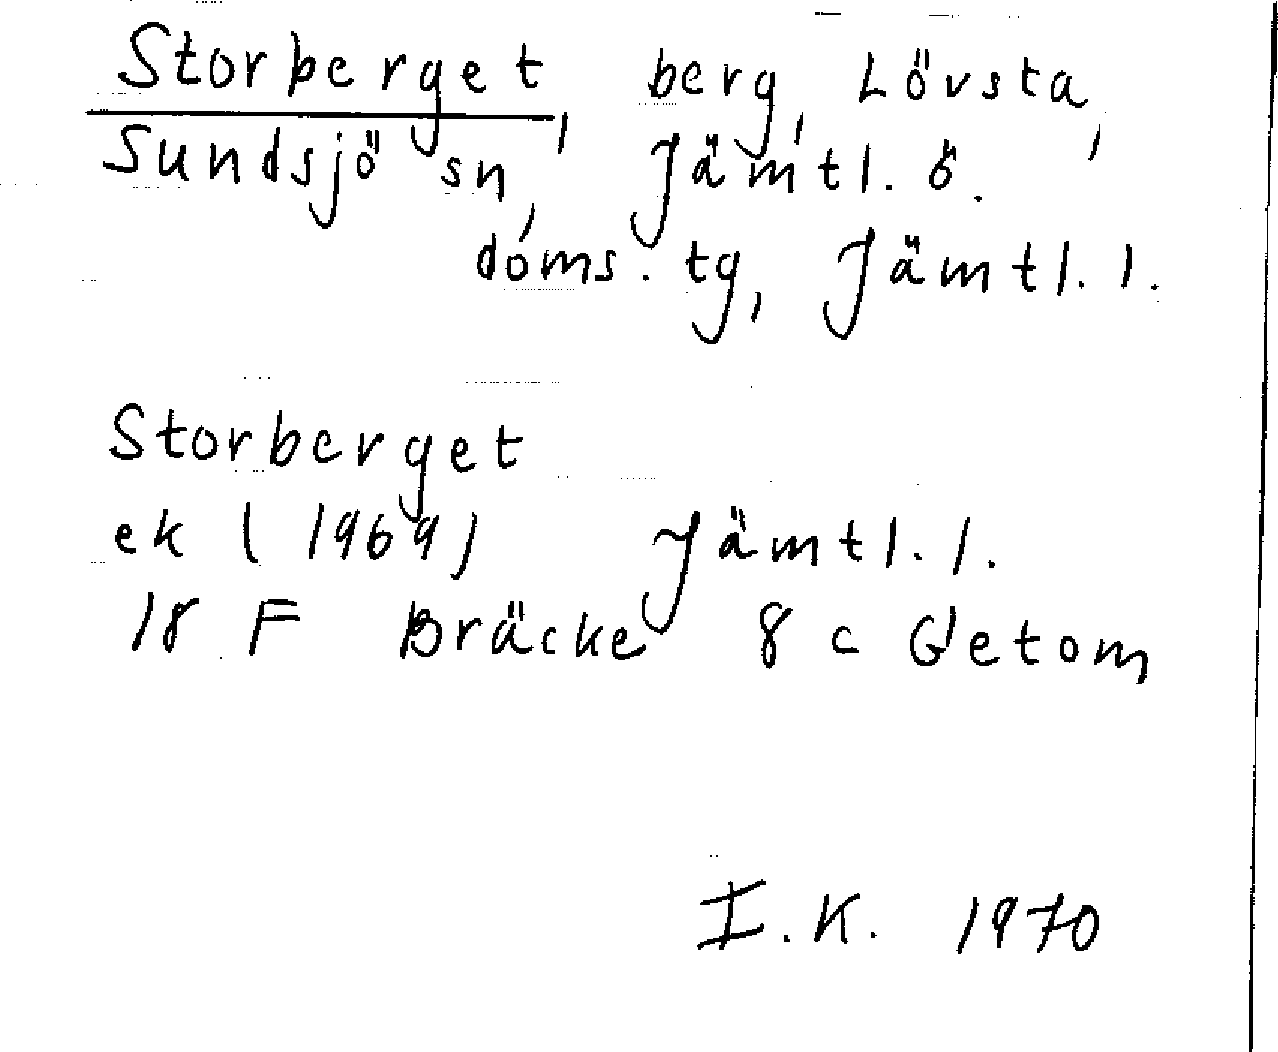 Storberget, berg, Lövsta,
Sundsjö sn, Jämtl. ö.
doms. tg, Jämtl. l.
Storberget
ek (1969) Jämtl. l.
18 F Bräcke 8 c Getom
I.K. 1970